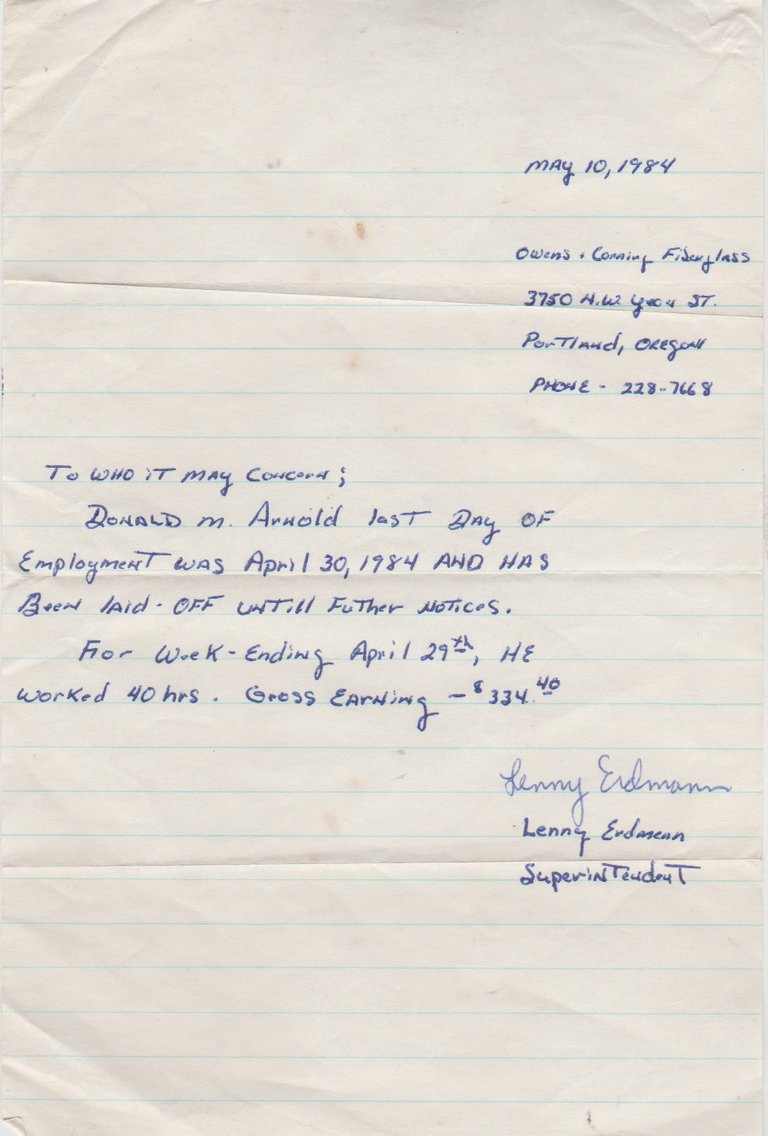 May 10, 1984
Owens-Corning Fiberglass
3750 N.W. Yeon ST.
Portland, Oregon
Phone - 228-7668
To who it may concern;
Donald M. Arnold last Day of
Employment was April 30, 1984 AND HAS
Been laid-off untill Futher Notices.
For Week-Ending April 29th, HE
worked 40 hrs. Gross Earning - $334.40
Lenny Erdmann
Lenny Erdmann
Superintendent